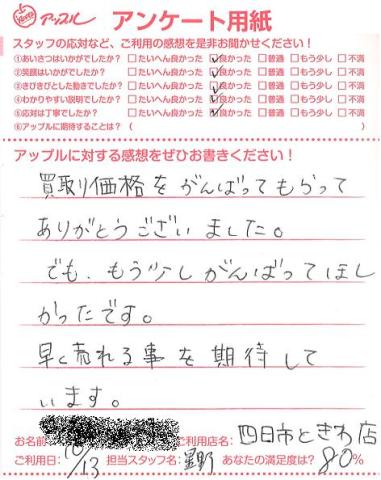 アップル アンケート用紙
スタッフの応対など、ご利用の感想を是非お聞かせください!
①あいさつはいかがでしたか? □たいへん良かった ☑良かった □普通 □もう少し □不満
②笑顔はいかがでしたか? □たいへん良かった ☑良かった □普通 □もう少し □不満
③きびきびとした動きでしたか? □たいへん良かった ☑良かった □普通 □もう少し □不満
④わかりやすい説明でしたか? □たいへん良かった ☑良かった □普通 □もう少し □不満
⑤応対は丁寧でしたか? □たいへん良かった ☑良かった □普通 □もう少し □不満
⑥アップルに期待することは? ( )
アップルに対する感想をぜひお書きください!
買取り価格をがんばってもらって
ありがとうございました。
でも、もう少しがんばってほし
かったです。
早く売れる事を期待して
います。
お名前 ご利用店名: 四日市ときわ店
ご利用日: 10/13 担当スタッフ名: 星野 あなたの満足度は? 80%